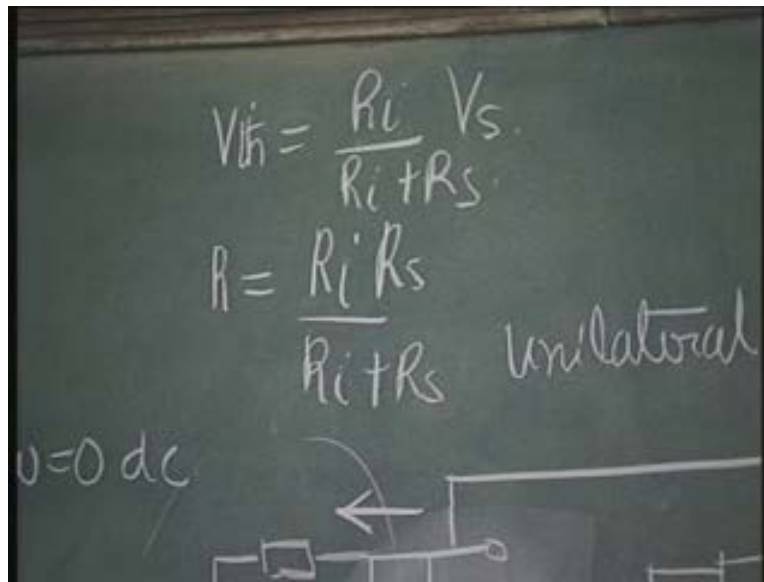 Vth = Ri / Ri + Rs Vs.
R = Ri Rs / Ri + Rs
unilateral
=0 dc